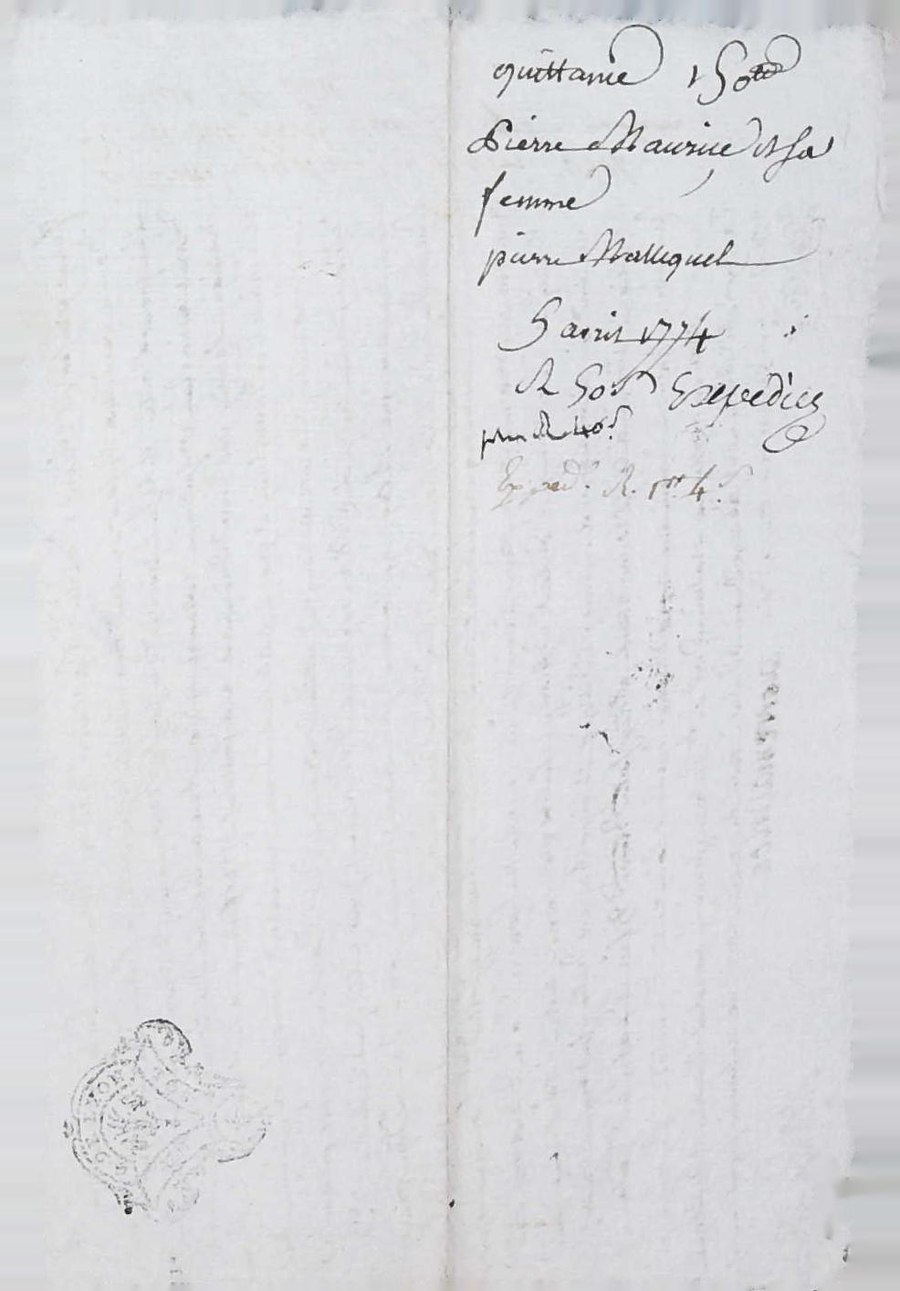 quittance 150tt
Pierre Maurice et sa
femme
pierre Malliquet
5 avril 1774
R 50s Expediée
R 40s
Exped. R. 1tt 4s